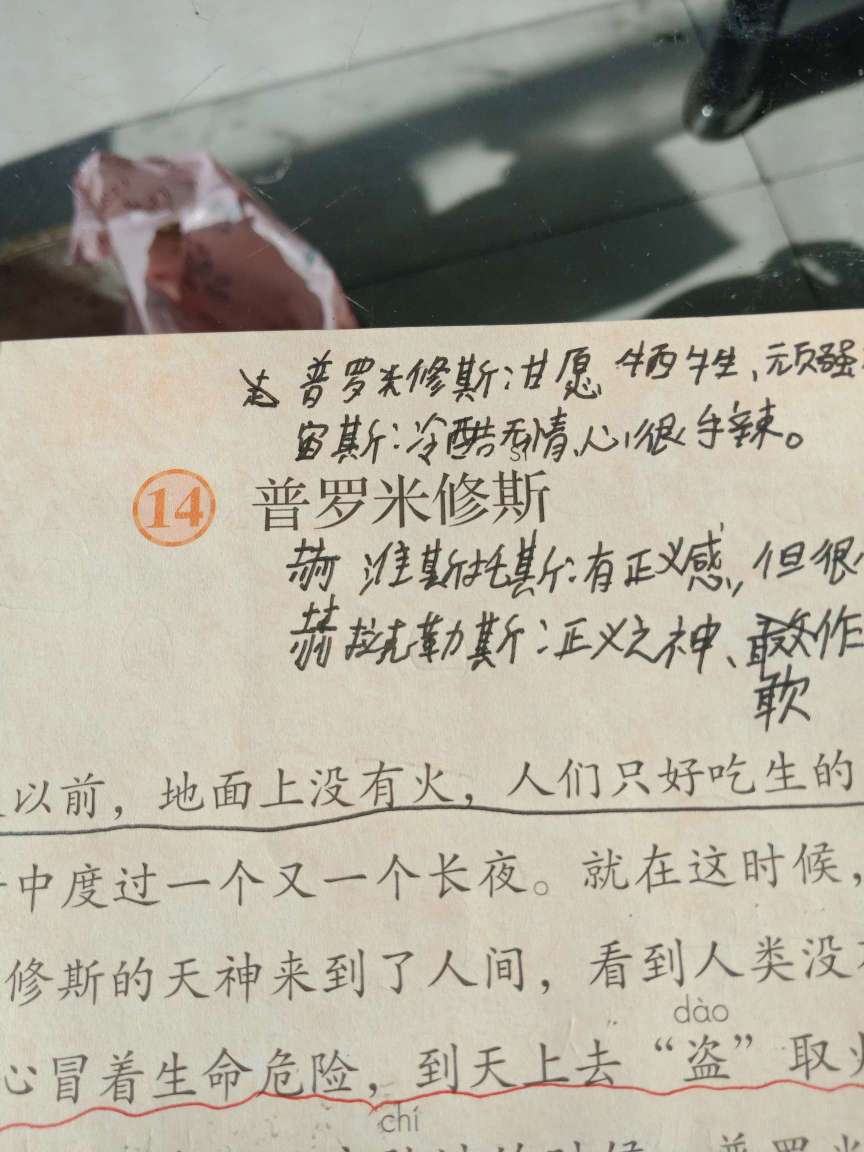 普罗米修斯:甘愿牺牲、顽强
宙斯:冷酷无情、心很手辣。
14 普罗米修斯
赫淮斯托斯:有正义感,但很
赫拉克勒斯:正义之神、敢作
敢
以前,地面上没有火,人们只好吃生的
中度过一个又一个长夜。就在这时候,
修斯的天神来到了人间,看到人类没
dào
心冒着生命危险,到天上去“盗”取火
chí